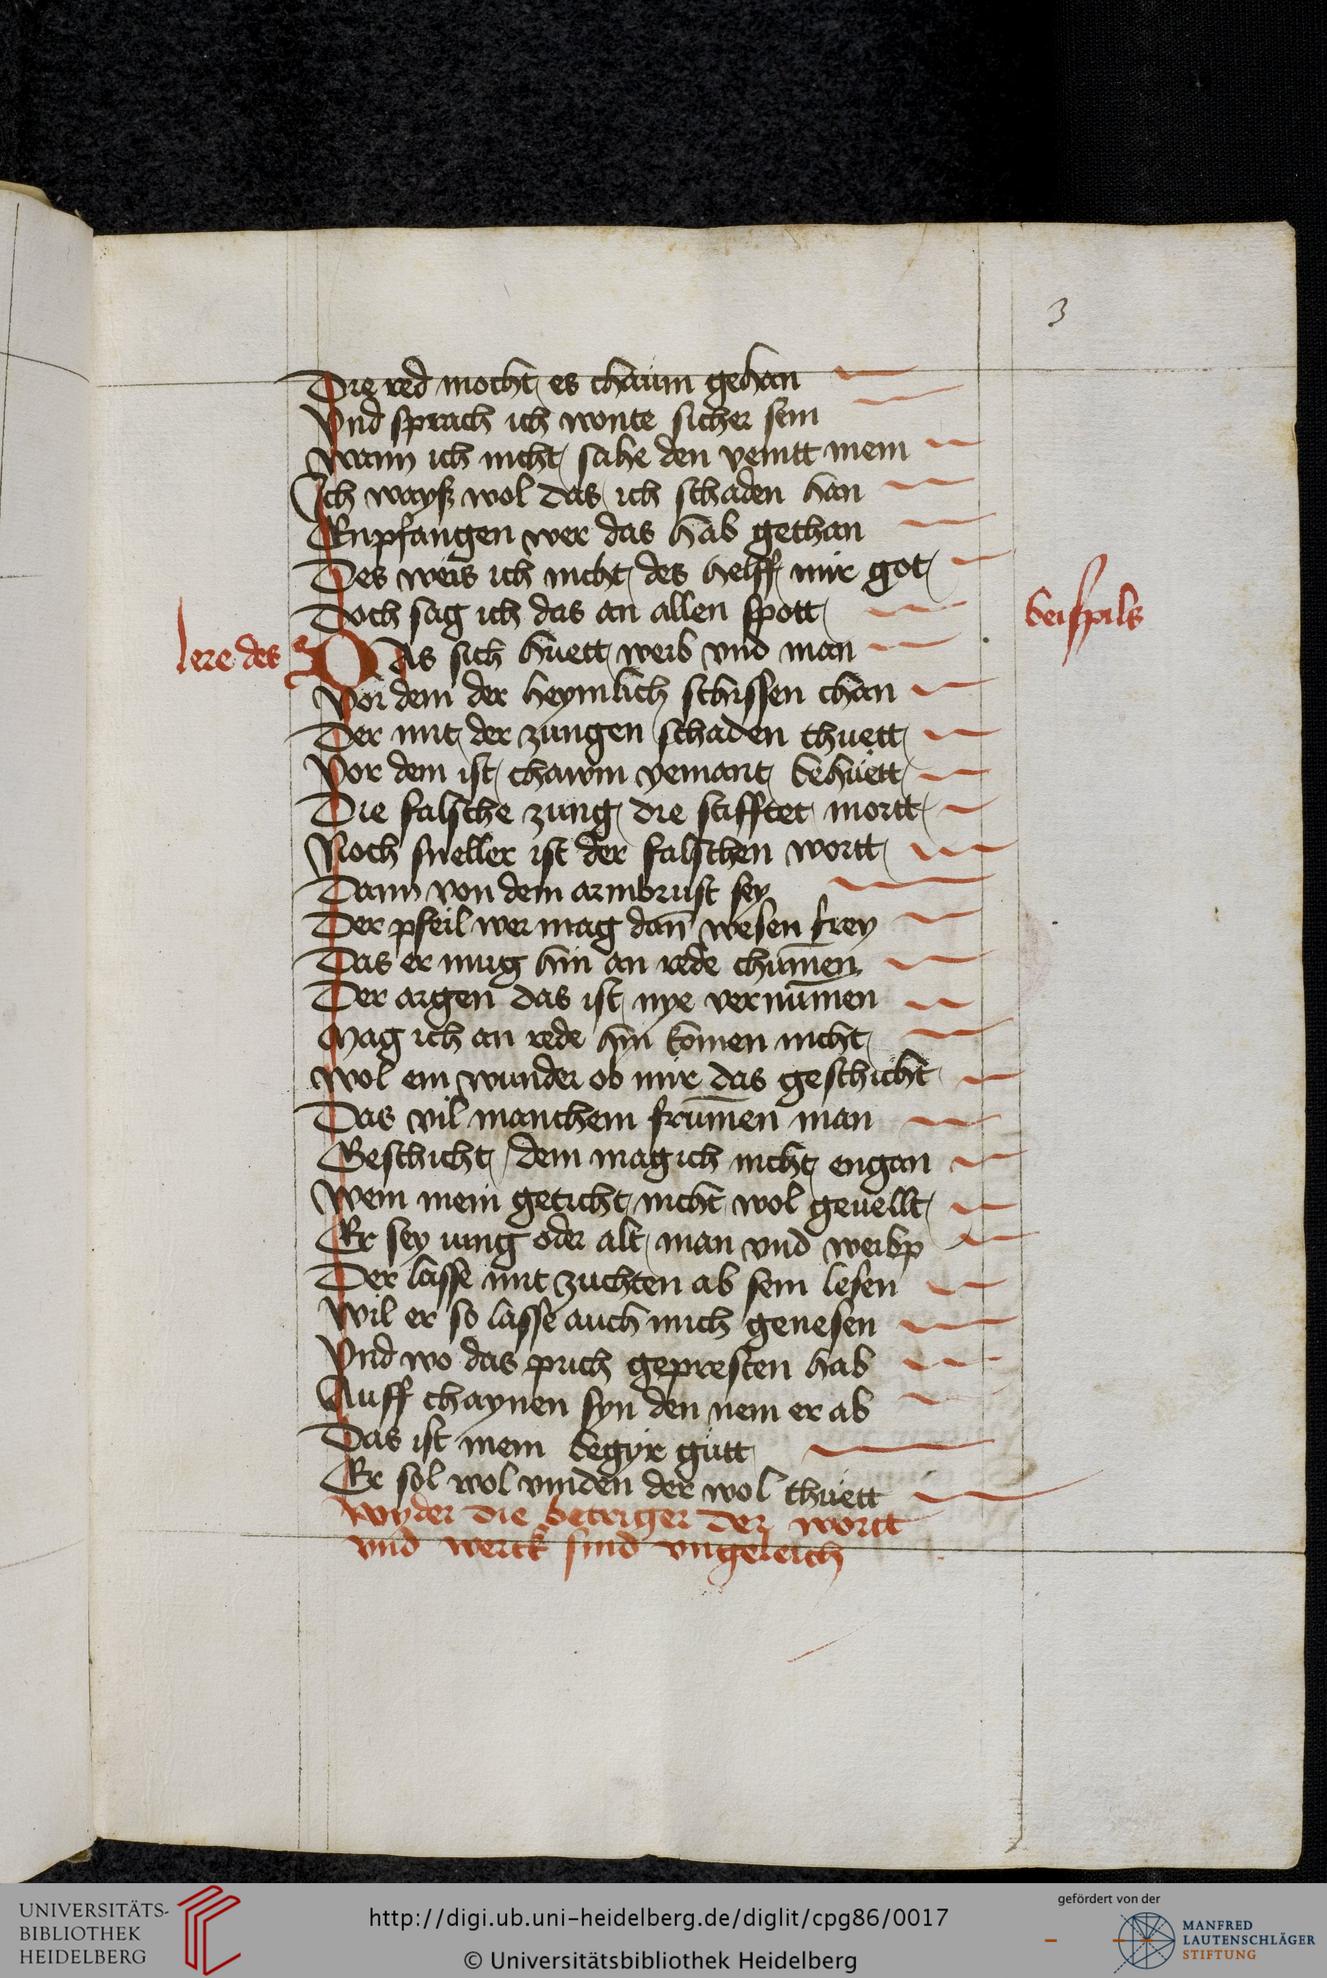 3
Die red mocht es chaum gehan
Vnd sprach ich wonte sicher sein
wann ich nicht sahe den veintt mein
Ich wayß wol das ich schaden han
Enpfangen wer das hab gethan
Des weis ich nicht des helff mir got
Doch sag ich das an allen spott
lere des beispils
Das sich huett weib vnd man
Vor dem der heymlich schissen chan
Der mit der zungen schaden thuett
Vor dem ist chawm yemant behuett
Die falsche zung die stifftet mortt
Noch sneller ist der falschen wortt
Dann von dem armbrust sey
Der pfeil wer mag dan̄ wesen frey
Das er mug hin an rede chum̄en
Der argen das ist nye vernum̄en
Mag ich an rede hin komen nicht
wol ein wunder ob mir das geschicht
Das vil manchem frum̄en man
Geschicht dem mag ich nicht engan
Wem mein geticht nicht wol geuellt
Er sey iung oder alt man vnd weibp
Der lasse mit zuchten ab sein lesen
Wil er so lasse auch mich genesen
Vnd wo das puch gepresten hab
Auff chaynen syn den nem er ab
Das ist mein begyr gutt
Er sol wol vinden der wol thuett
wyder die betriger der wortt
vnd werck sind vngeleich
UNIVERSITÄTS-
BIBLIOTHEK
HEIDELBERG
http://digi.ub.uni-heidelberg.de/diglit/cpg86/0017
© Universitätsbibliothek Heidelberg
gefördert von der
MANFRED
LAUTENSCHLÄGER
STIFTUNG